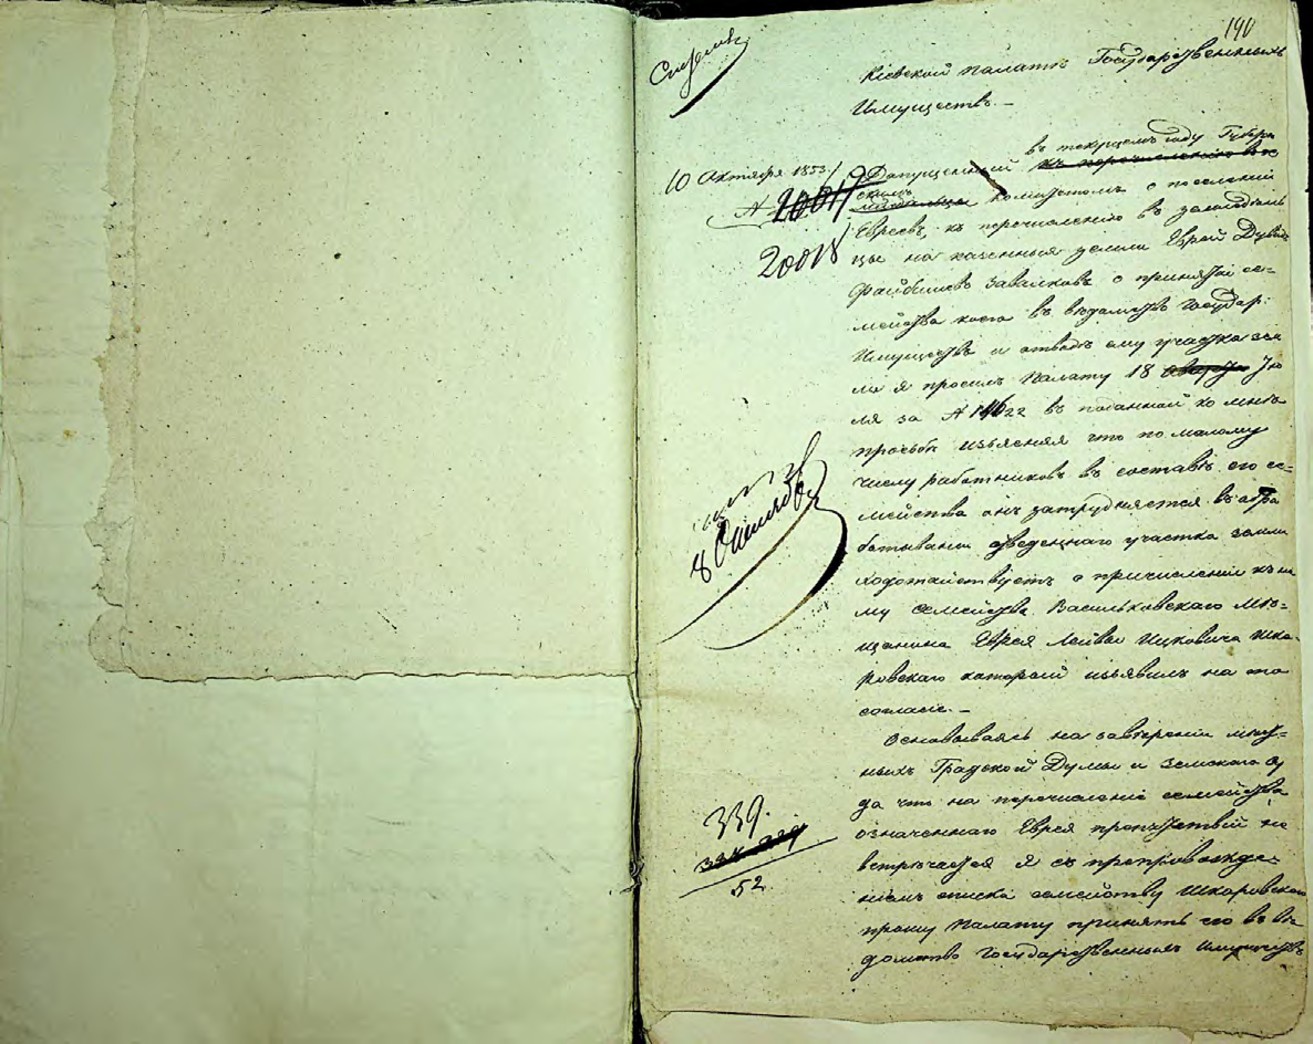 190
Кіевской Палатѣ Государственныхъ
Имуществъ. —
10 Октября 1853
№ 20017
20018
въ текущемъ году Губерн
Допущенный къ перечисленію въ
скимъ комитетомъ о поселеніи
Евреевъ, къ перечисленію въ земледѣль
цы на казенныя земли Еврей
о принятіи се=
мейства коего въ вѣдомство Государ:
Имуществъ и отводѣ ему участка зем
ли я просилъ Палату 18 Ію
ля за № 14622 въ поданной ко мнѣ
просьбѣ изъясняя что по малому
числу работниковъ въ составѣ его се=
мейства онъ затрудняется въ обра
батываніи отведеннаго участка земли
ходотайствуетъ о причисленіи къ не
му семейства Васильковскаго мѣ=
щанина Еврея Лейбы Ицковича Шка=
ровскаго который изъявилъ на то
согласіе. —
Основываясь на завѣреніи мѣст=
ныхъ Градской Думы и Земскаго Су
да что на перечисленіе семейства
означеннаго Еврея препятствій не
встрѣчается я съ препровожде=
ніемъ списка семейству Шкаровскаго
прошу Палату принять его въ вѣ
домство Государственныхъ Имуществъ
8 Октября
339.
52